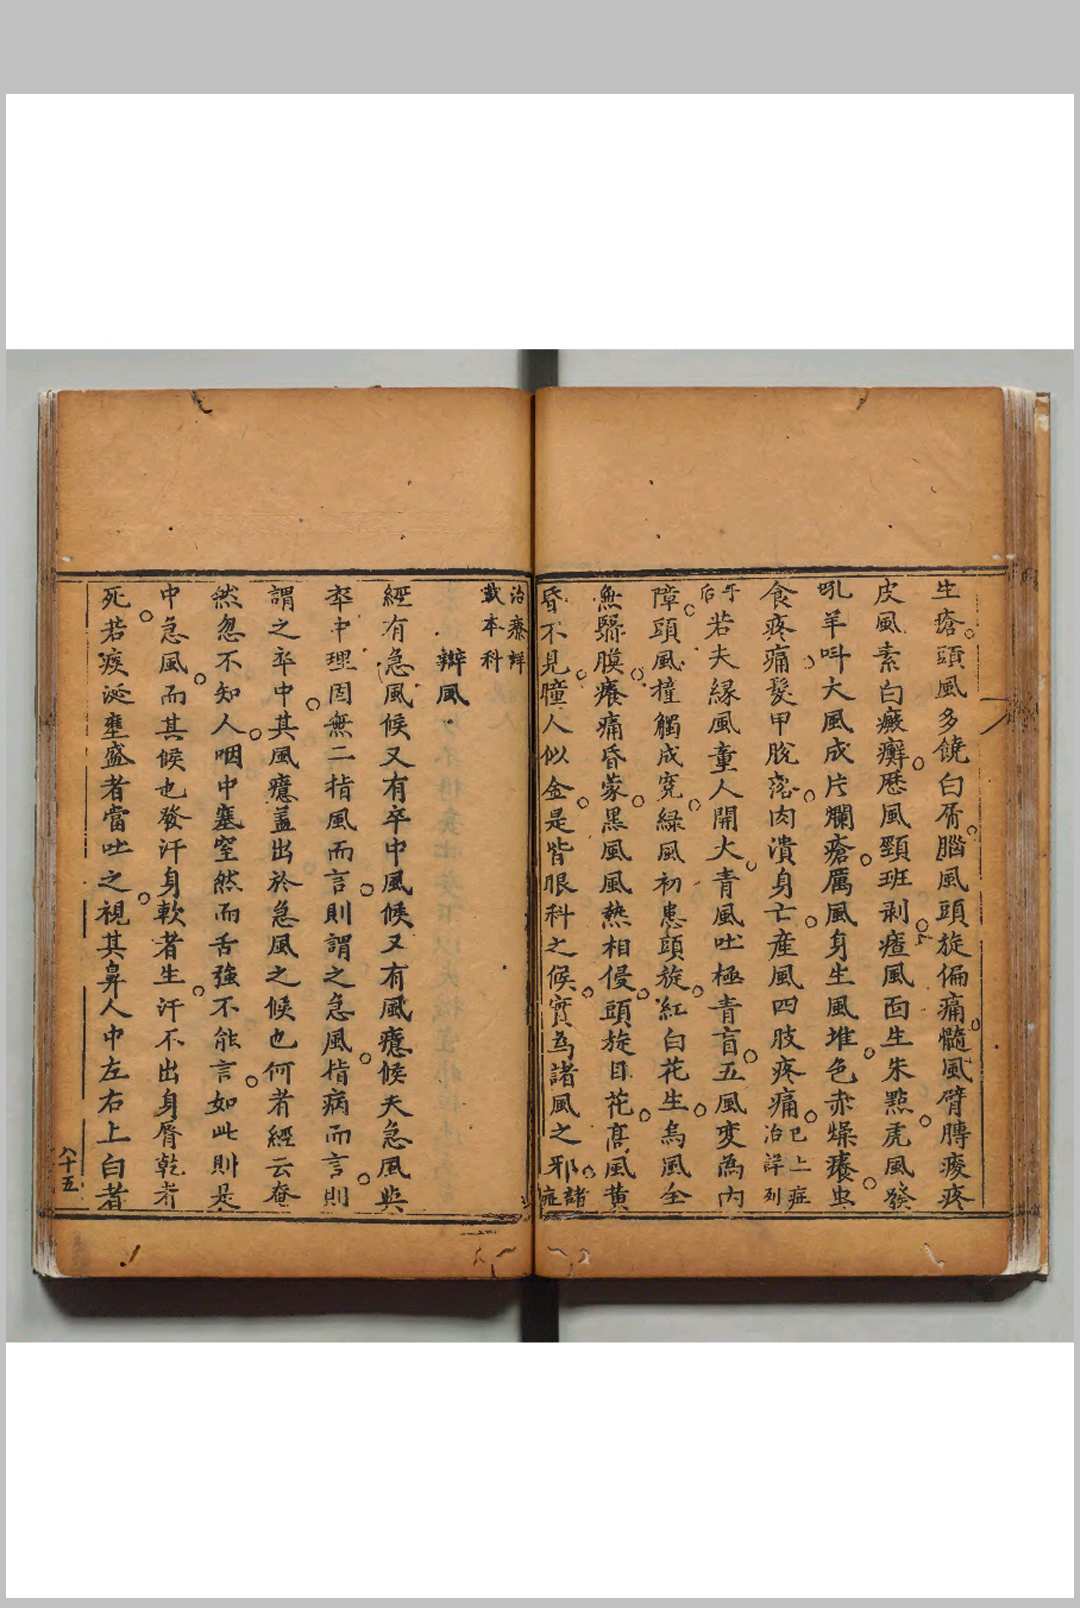 生瘡頭風多饒白屑腦風頭旋偏痛髓風臂膊痠疼
皮風紊白癜癬歷風頸班剥㾴風面生朱點虎風發
吼羊叫大風成片爛瘡厲風身生風堆色赤燥癢虫
食疼痛髮甲脫落肉潰身亡產風四肢疼痛已上症治詳列
于后若夫緣風童人開大青風吐極青盲五風变為內
障頭風撞觸成寃緑風初患頭旋紅白花生烏風全
無翳膜癢痛昏蒙黑風風熱相侵頭旋目花高風黄
昏不見瞳人似金是皆眼科之候實為諸風之邪諸症
治療詳
載本科
辯風
經有急風候又有卒中風候又有風癔候夫急風與
卒中理固無二指風而言則謂之急風指病而言則
謂之卒中其風癔盖出於急風之候也何者經云奄
然忽不知人咽中塞窒然而舌強不能言如此則是
中急風而其候也發汗身軟者生汗不出身脣乾者
死若痰涎壅盛者當吐之視其鼻人中左右上白者
八十五